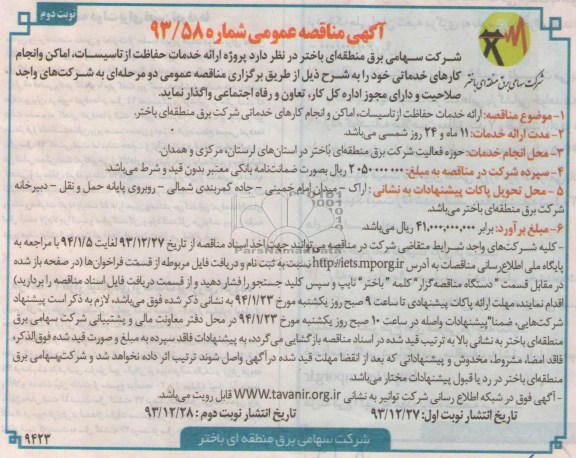 نوبت دوم
آگهی مناقصه عمومی شماره ۹۳/۵۸
شرکت سهامی برق منطقه‌ای باختر در نظر دارد پروژه ارائه خدمات حفاظت از تاسیسات، اماکن وانجام
کارهای خدماتی خود را به شرح ذیل از طریق برگزاری مناقصه عمومی دو مرحله‌ای به شرکت‌های واجد
صلاحیت و دارای مجوز اداره کل کار، تعاون و رفاه اجتماعی واگذار نماید.
شرکت سهامی برق منطقه ای باختر
۱- موضوع مناقصه: ارائه خدمات حفاظت ازتاسیسات، اماکن و انجام کارهای خدماتی شرکت برق منطقه‌ای باختر.
۲- مدت ارائه خدمات: ۱۱ ماه و ۲۴ روز شمسی می‌باشد.
۳- محل انجام خدمات: حوزه فعالیت شرکت برق منطقه‌ای باختر در استان‌های لرستان، مرکزی و همدان.
۴- سپرده شرکت در مناقصه به مبلغ: ۲۰۵۰۰۰۰۰۰۰ ریال بصورت ضمانت‌نامه بانکی معتبر بدون قید و شرط می‌باشد.
۵- محل تحویل پاکات پیشنهادات به نشانی: اراک - میدان امام خمینی - جاده کمربندی شمالی - روبروی پایانه حمل و نقل - دبیرخانه
شرکت برق منطقه‌ای باختر می‌باشد.
۶- مبلغ برآورد: برابر ۴۱,۰۰۰,۰۰۰,۰۰۰ ریال می‌باشد.
- کلیه شرکت‌های واجد شرایط متقاضی شرکت در مناقصه می‌توانند جهت اخذ اسناد مناقصه از تاریخ ۹۳/۱۲/۲۷ لغایت ۹۴/۱/۵ با مراجعه به
پایگاه ملی اطلاع‌رسانی مناقصات به آدرس http://iets.mporg.ir نسبت به ثبت نام و دریافت فایل مربوطه از قسمت فراخوان‌ها (در صفحه باز شده
در مقابل قسمت "دستگاه مناقصه‌گزار" کلمه "باختر" تایپ و سپس کلید جستجو را فشار دهید و از قسمت دریافت فایل اسناد مناقصه را بردارید)
اقدام نمایند، مهلت ارائه پاکات پیشنهادی تا ساعت ۹ صبح روز یکشنبه مورخ ۹۴/۱/۲۳ به نشانی ذکر شده فوق می‌باشد، لازم به ذکر است پیشنهاد
شرکت‌هایی، ضمنا"پیشنهادات واصله در ساعت ۱۰ صبح روز یکشنبه مورخ ۹۴/۱/۲۳ در محل دفتر معاونت مالی و پشتیبانی شرکت سهامی برق
منطقه‌ای باختر به نشانی بالا به ترتیب قید شده در اسناد مناقصه بازگشایی می‌گردد، به پیشنهادات فاقد سپرده به مبلغ و صورت قید شده فوق‌الذکر،
فاقد امضاء، مشروط، مخدوش و پیشنهاداتی که بعد از انقضا مهلت قید شده درآگهی واصل شوند ترتیب اثر داده نخواهد شد و شرکت سهامی برق
منطقه‌ای باختر در رد یا قبول پیشنهادات مختار می‌باشد.
- آگهی فوق در شبکه اطلاع رسانی شرکت توانیر به نشانی WWW.tavanir.org.ir قابل رویت می‌باشد.
تاریخ انتشار نوبت اول: ۹۳/۱۲/۲۷ تاریخ انتشار نوبت دوم: ۹۳/۱۲/۲۸
شرکت سهامی برق منطقه ای باختر
۹۴۲۳